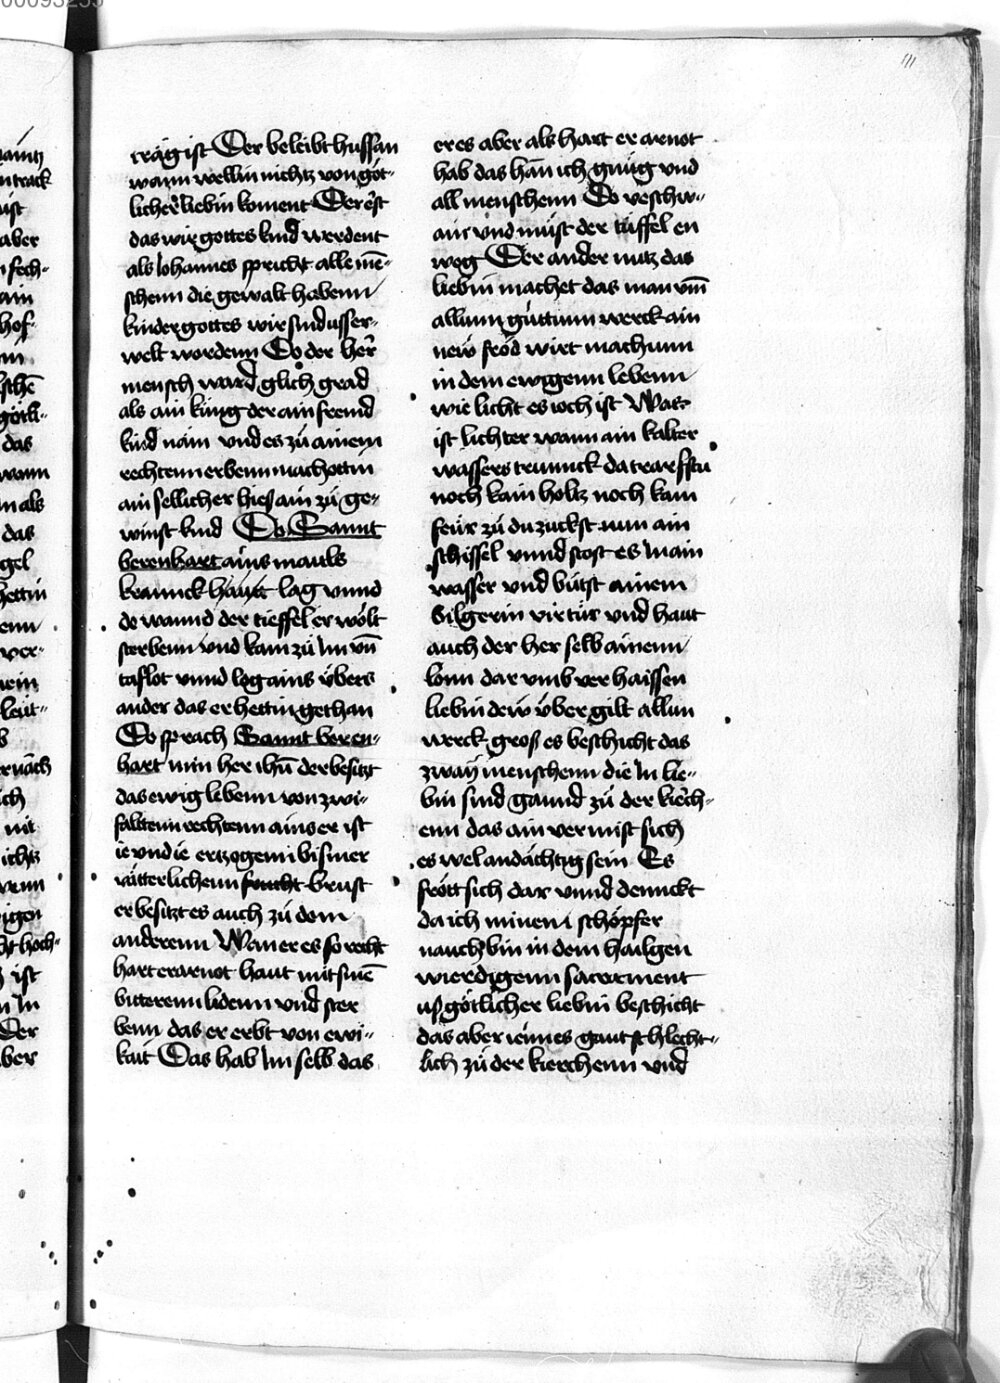 träg ist Der beleibt hussan
wann wellin nichtz von göt-
licher liebin koment Der erst
das wir gottes kind werdent
als Johannes spricht alle mē-
schenn die gewalt habenn
kinder gottes wir sind usser-
welt wordenn Do der her
mensch ward glich grad
als ain küng der ain fremd
kind nam und es zů ainem
rechtenn erbenn machottin
ain sellicher hies ain zů ge-
winst kind Do Sannt
berenhart ains mauls
kranck lag unnd
de wannd der tieffel er wölt
sterbenn und kam zů Im uñ
taflot unnd log ains übers
ander das er hettin gethan
Do sprach Sannt beren-
hart min her ihū der besitzt
das ewig lebenn von zwi-
faltenn rechtenn ains er ist
ie und ie erzogenn bis iner
vätterlichenn brust
er besitzt es auch zů dem
anderenn Wenn er es so recht
hart erarnot haut mit sinē
bitterenn lidenn und ster
benn das er erbt von ewi-
kait Das hab Im selb das
er es aber als hart er arnot
hab das han ich gnůg und
all menschenn Do verschw-
ain und můst der tüffel en
weg Der ander nutz das
liebin machet das man vm̄
allunn gůttunn werck ain
new fröd wirt machunn
in dem ewigenn lebenn
wie licht es ioch ist Was
ist lichter wann ain kalter
wassers trunnck da
noch kain holtz noch kain
feür zů du zuckst nun ain
schissel unnd stost es In ain
wasser und bütst ainem
bilgerin vir tür und haut
auch der her selb ainenn
lonn dar umb ver haissen
liebin dew über gilt allun
werck gross es beschicht das
zway menschenn die In lie-
bin sind gannd zů der kirch-
enn das ain vermist sich
es wel andächtig sein Es
fröit sich dar unnd dennckt
da ich minem schöpfer
nauch bin in dem hailgen
wierdigenn sacrament
us götlicher liebin beschicht
das aber iennes gaut schlecht-
lich zů der kierchenn und